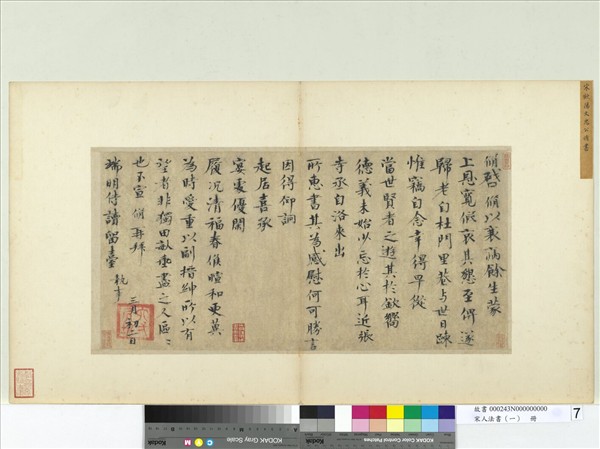 宋歐陽文忠公脩書
脩啓脩以衰病餘生蒙
上恩寬假哀其懇至俾遂
歸老自杜門里巷與世日疎
惟竊自念幸得早從
當世賢者之遊其於欽嚮
德義未始少忘於心耳近張
寺丞自洛來出
所惠書其為感慰何可勝言
因得仰詢
起居喜承
宴處優閑
履況清福春候暄和更冀
為時愛重以副搢紳所以有
望者非獨田畝垂盡之人區區
也不宣脩再拜
端明侍讀留臺執事
三月初二日
KODAK Gray Scale
KODAK Color Control Patches
Kodak
故書 000243N000000000
宋人法書(一) 冊
7